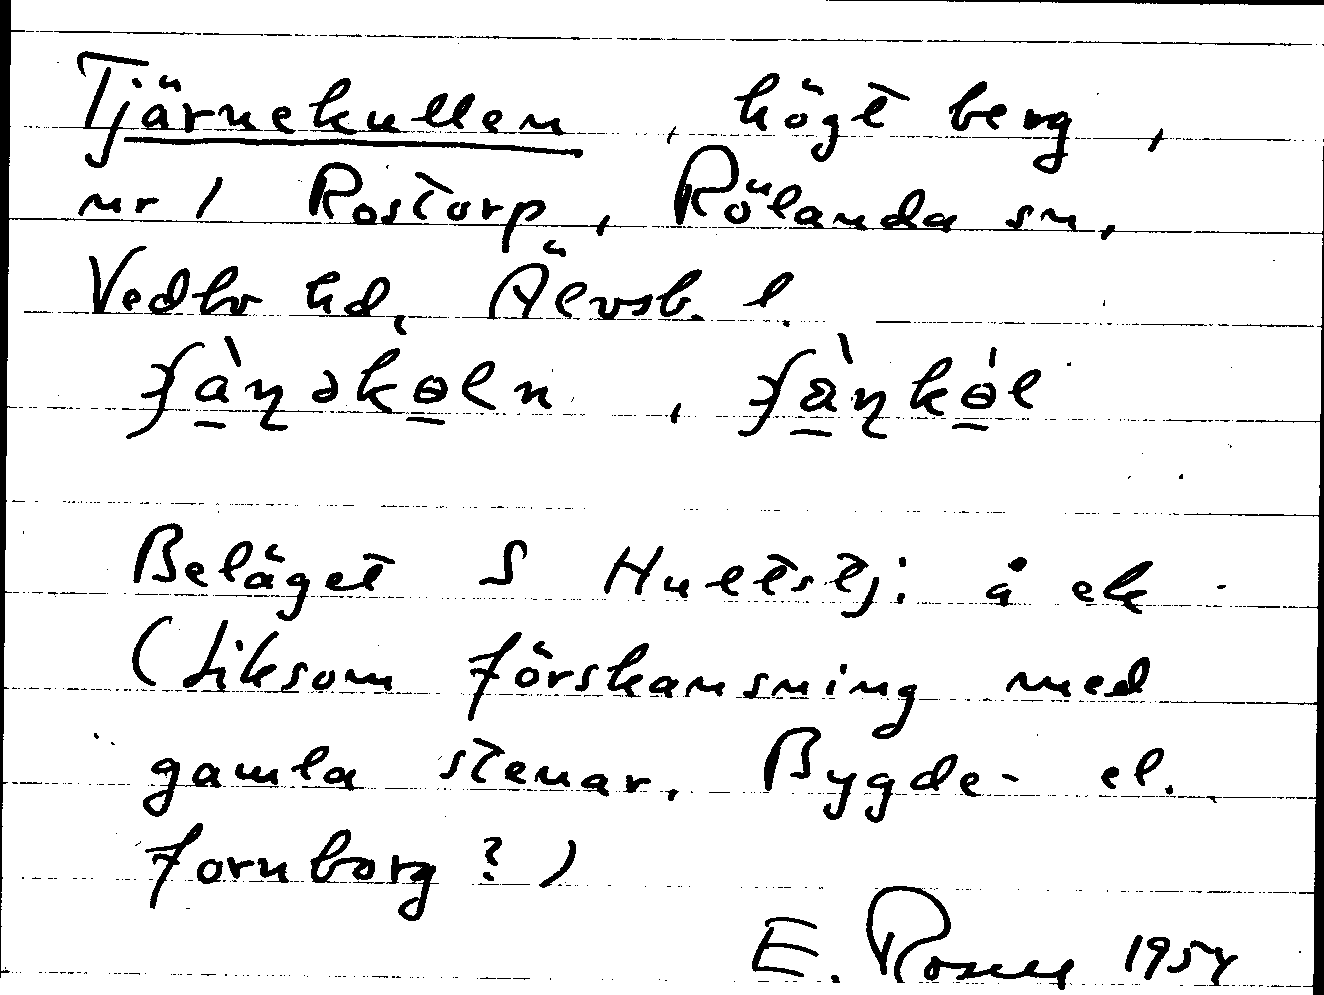 Tjärnekullen, högt berg,
nr 1 Rostorp, Rölanda sn,
Vedbo hd, Älvsb. l.
ʄà̠ɳəkɵ̠ln, ʄà̠ɳkɵ̠́l
Beläget S Hultstj. å ek
(Liksom förskansning med
gamla stenar. Bygde- el.
fornborg?)
E. Rosell 1954